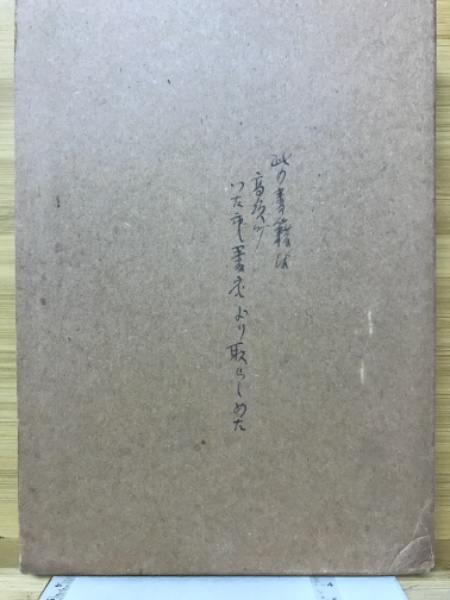 此の書籍は
高須町
いたし書店より取らしめた